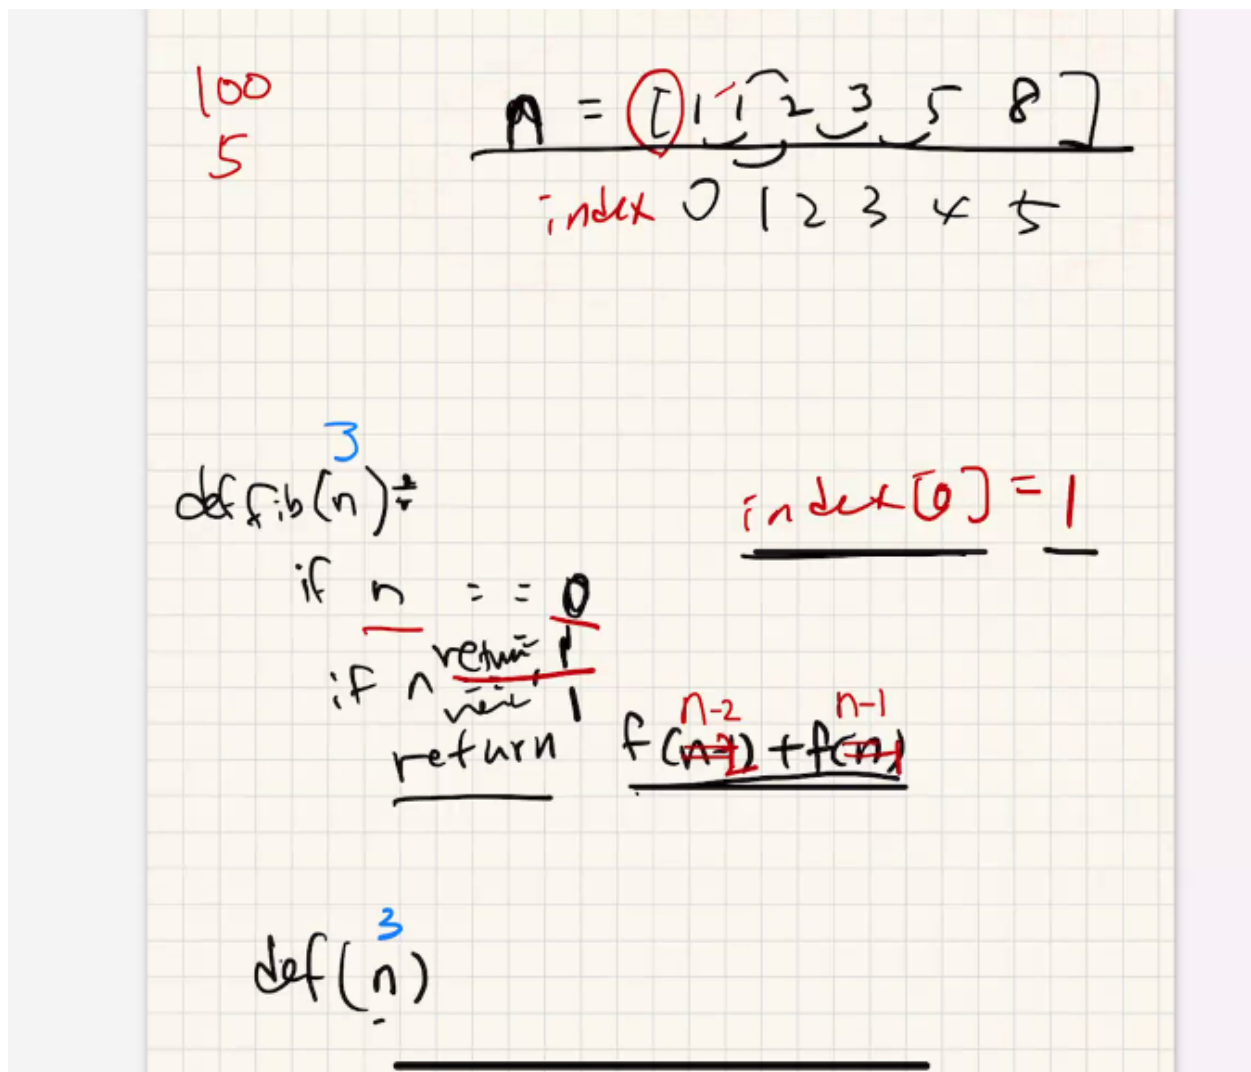 100
5
n = [ 1 1 2 3 5 8 ]
index 0 1 2 3 4 5
3
def fib(n):
index[0] = 1
if n == 0
return 1
if n 1
n-2 n-1
return f( ) + f( )
3
def(n)